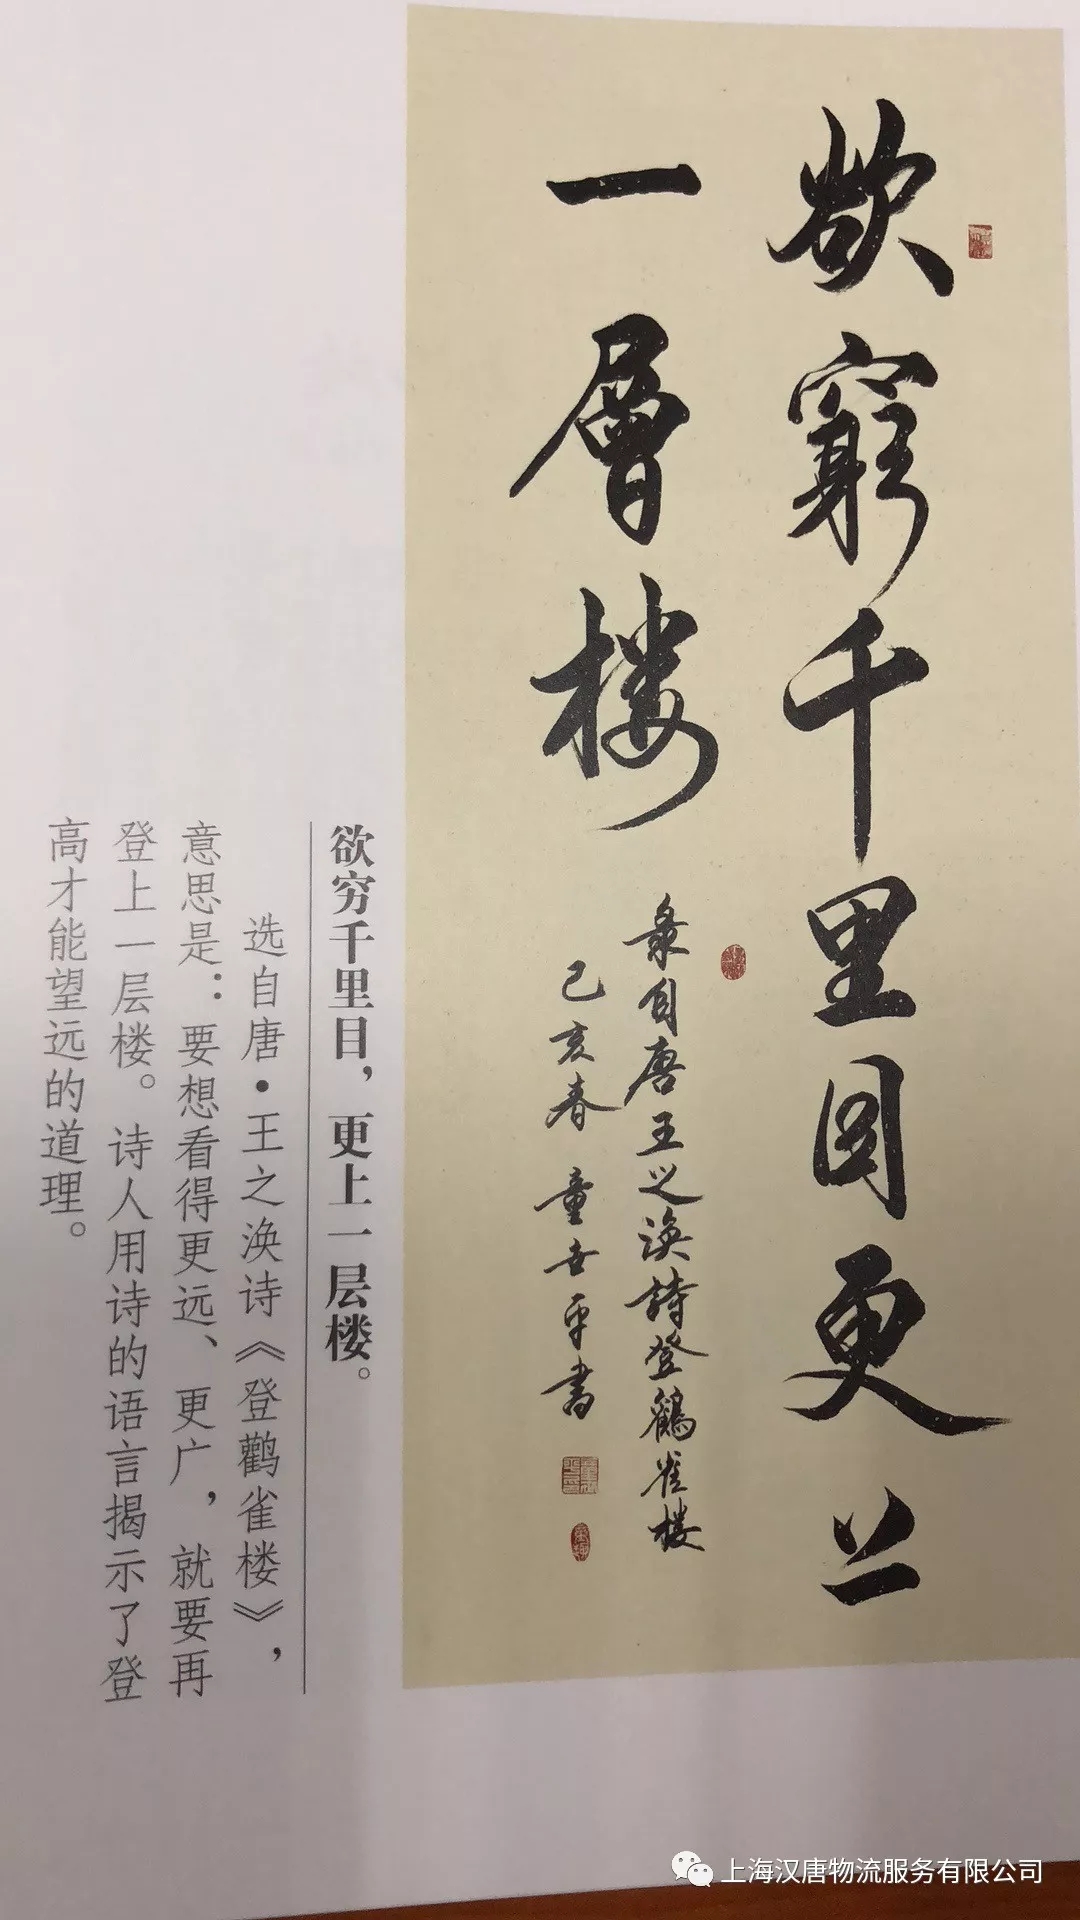 欲窮千里目更上
一層樓
录自唐王之渙詩登鸛雀樓
己亥春 童世平書
欲穷千里目，更上一层楼。
选自唐·王之涣诗《登鹳雀楼》，
意思是：要想看得更远、更广，就要再
登上一层楼。诗人用诗的语言揭示了登
高才能望远的道理。
上海汉唐物流服务有限公司